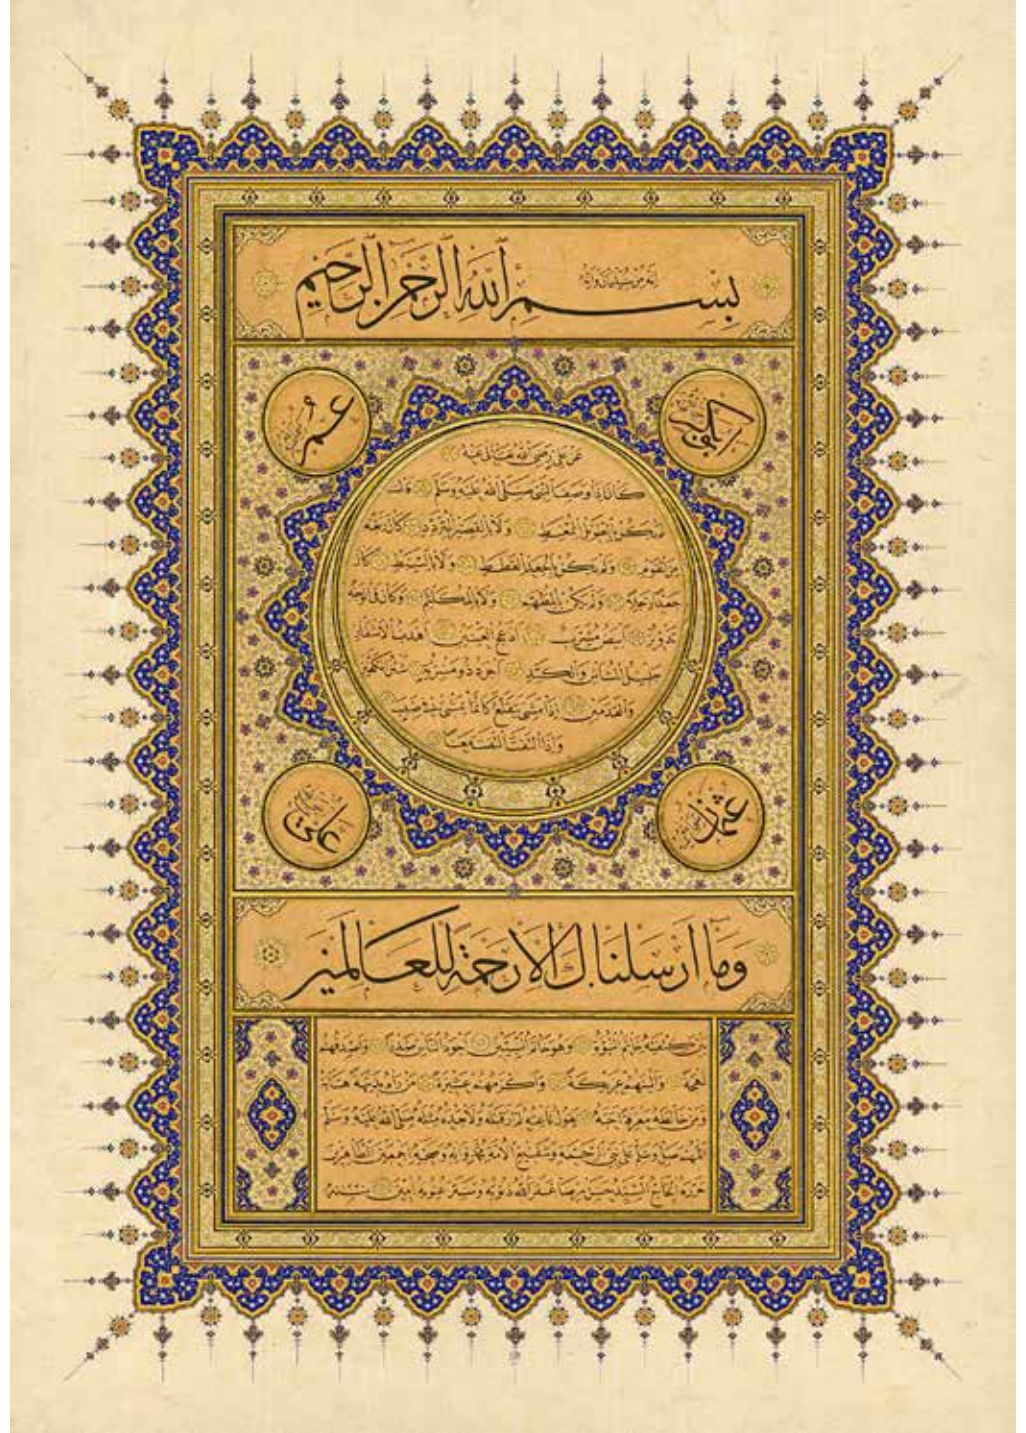 بسم الله الرحمن الرحيم
انه من سليمان وانه
ابوبكر
عمر
عن علي رضي الله تعالى عنه
كان اذا وصف النبي صلى الله عليه وسلم قال
لم يكن بالطويل الممغط ولا بالقصير المتردد كان ربعة
من القوم ولم يكن بالجعد القطط ولا بالسبط كان
جعدا رجلا ولم يكن بالمطهم ولا بالمكلثم وكان في الوجه
تدوير ابيض مشرب ادعج العينين اهدب الاشفار
جليل المشاش والكتد اجرد ذو مسربة شثن الكفين
والقدمين اذا مشى يتقلع كانما يمشي في صبب
واذا التفت التفت معا
عثمان
علي
وما ارسلناك الا رحمة للعالمين
بين كتفيه خاتم النبوة وهو خاتم النبيين اجود الناس صدرا واصدقهم
لهجة والينهم عريكة واكرمهم عشيرة من راه بديهة هابه
ومن خالطه معرفة احبه يقول ناعته لم ار قبله ولا بعده مثله صلى الله عليه وسلم
اللهم صل وسلم على نبي الرحمة وشفيع الامة محمد واله وصحبه اجمعين الطاهرين
حرره الحاج السيد حسن رضا غفر الله ذنوبه وستر عيوبه امين سنة